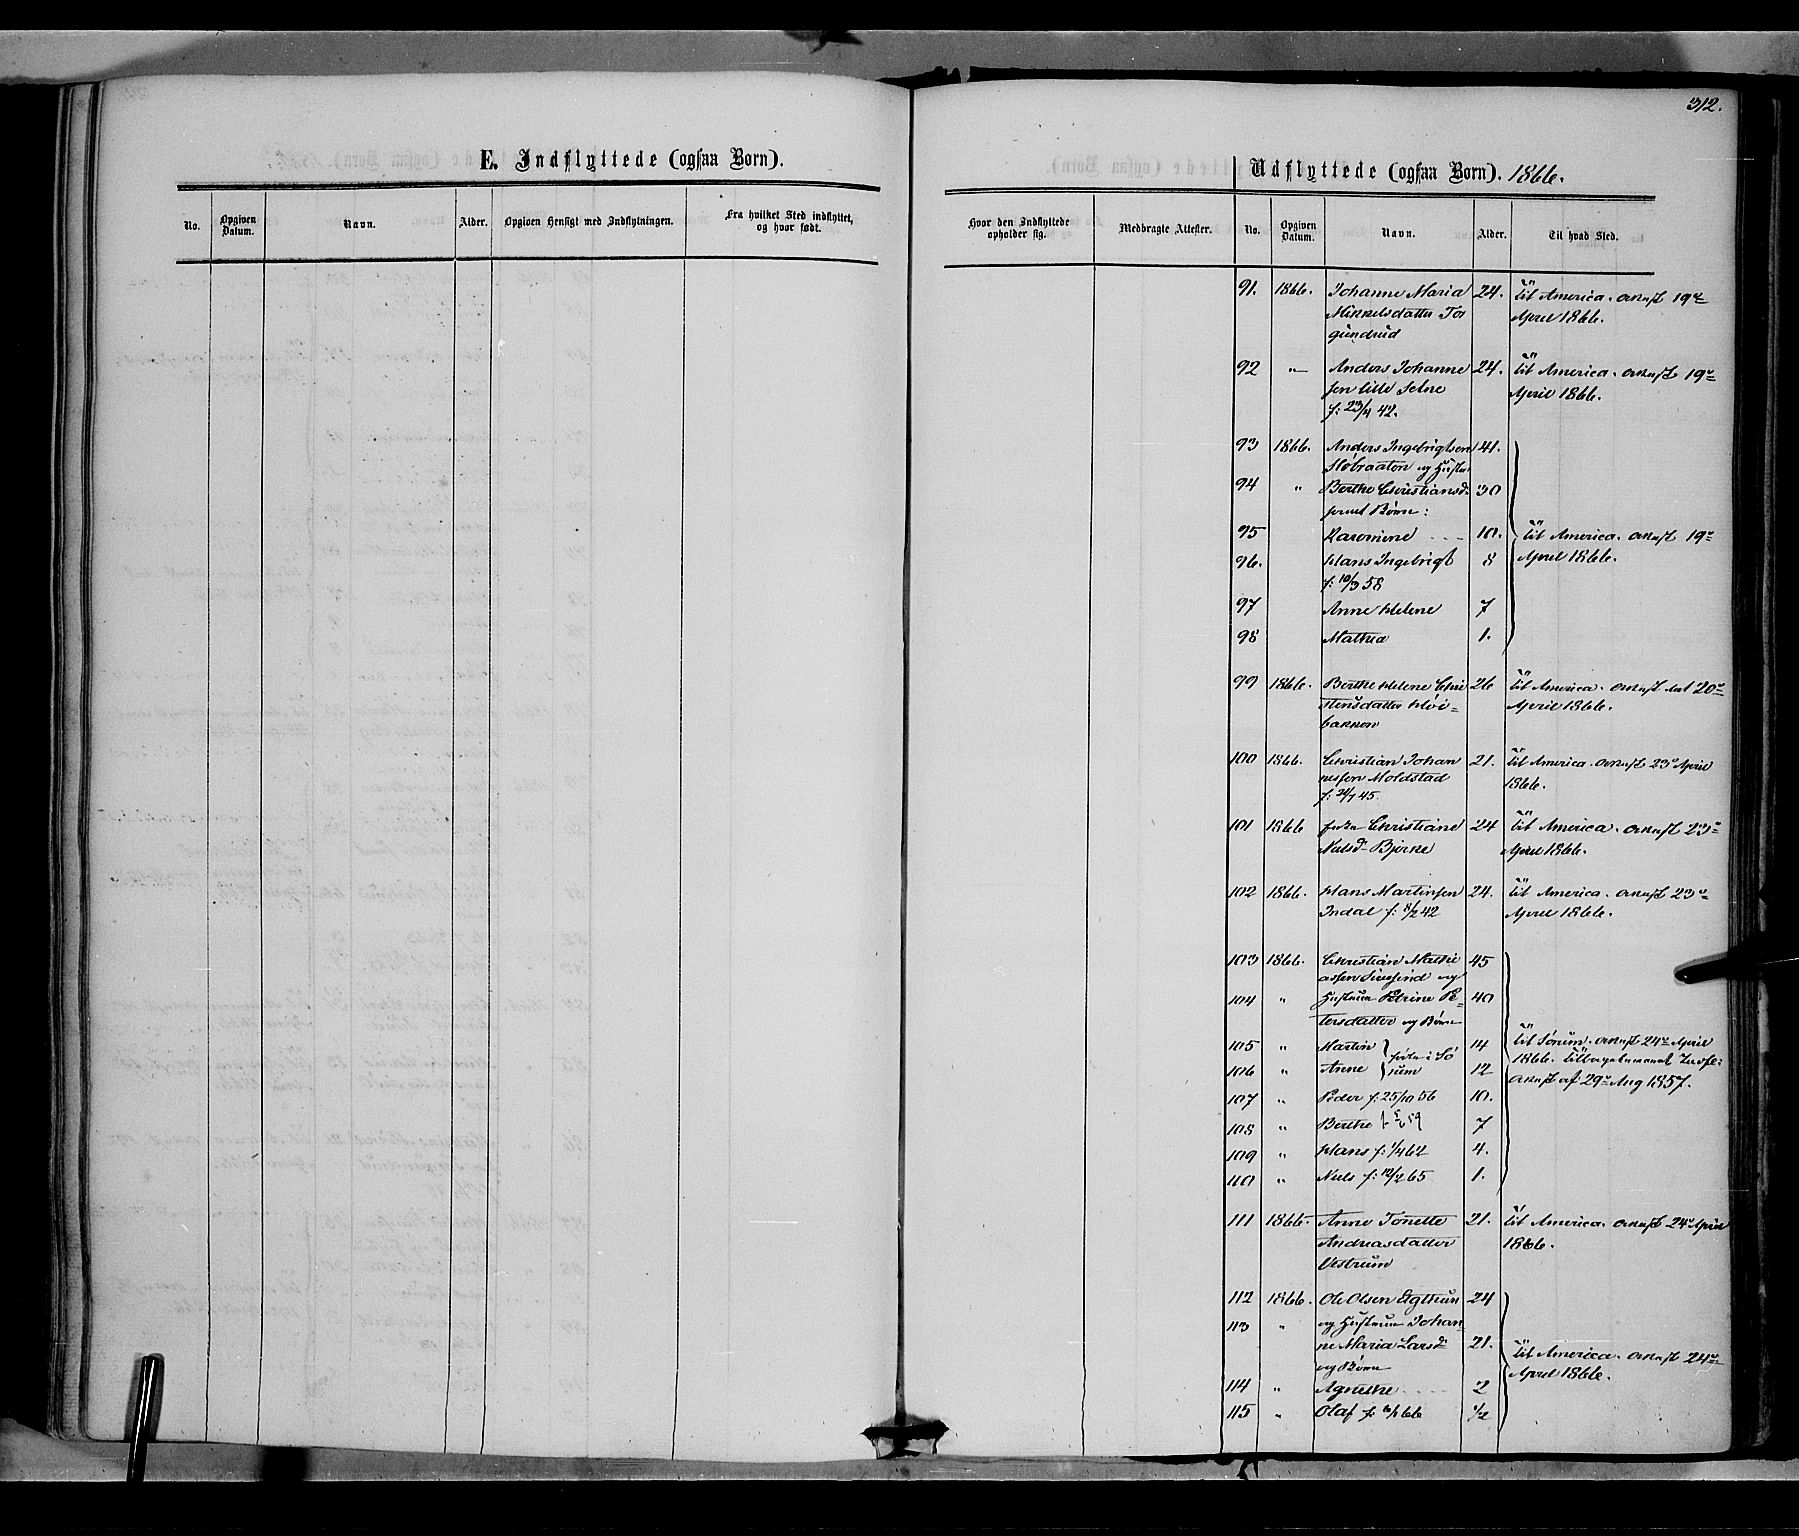 312.
E. Indflyttede (ogsaa Børn).
No.
Opgiven Datum.
Navn.
Alder.
Opgiven Hensigt med Indflytningen.
Fra hvilket Sted indflyttet, og hvor født.
Hvor den Indflyttede opholder sig.
Medbragte Attester.
Udflyttede (ogsaa Børn). 1866.
No.
Opgiven Datum.
Navn.
Alder.
Til hvad Sted.
91. 1866. Johanne Maria 24. til America. attest 19de
Mikkelsdatter To April 1866.
gundrud
92 " Anders Johanne 24. til America. attest 19de
sen lille Selne April 1866.
f: 23/4 42.
93 1866. Anders Ingebrigtsen 41.
Støbraaten og Hustru
94 " Berthe Christiansd. 30
samt Børn:
95 Karomine 10. til America. attest 19de
96. Hans Ingebrigt 8 April 1866.
f: 10/3 58
97 Anne Helene 7
98 Mathea 1.
99 1866. Berthe Helene Chri 26 til America. attest dat 20de
stensdatter Høi= April 1866.
bakken
100 1866. Christian Johan 21. til America. attest 23de April
nessen Moldstad 1866.
f: 24/7 45.
101 1866 Christiane 24 til America. attest 23de
Nielsd. Bjørke April 1866.
102 1866. Hans Martinsen 24. til America. attest 23de
Indal f: 8/2 42 April 1866.
103 1866. Christian Mathi 45
assen og
104 " Hustru Petrine Pe= 40
tersdatter og Børn
105 " Martin } født i Sø 14 til Sørum. attest 24de April
106 " Anne } rum 12 1866.
107 " Peder f: 25/10 56 10. attest af 29de Aug 1857.
108 " Berthe f. 5/6 59 7
109 " Hans f: 1/4 62 4.
110 " Niels f: 12/2 65 1.
111 1866. Anne Tonette 21. til America. attest 24de April
Andreasdatter 1866.
Vestrum
112 1866. Ole Olsen Egthun 24
113 " og Hustru Johan=
ne Maria Larsd. 21. til America. attest 24de
og Børn April 1866.
114 " Agnethe 2
115 " Olaf f: 6/1 66 1/2